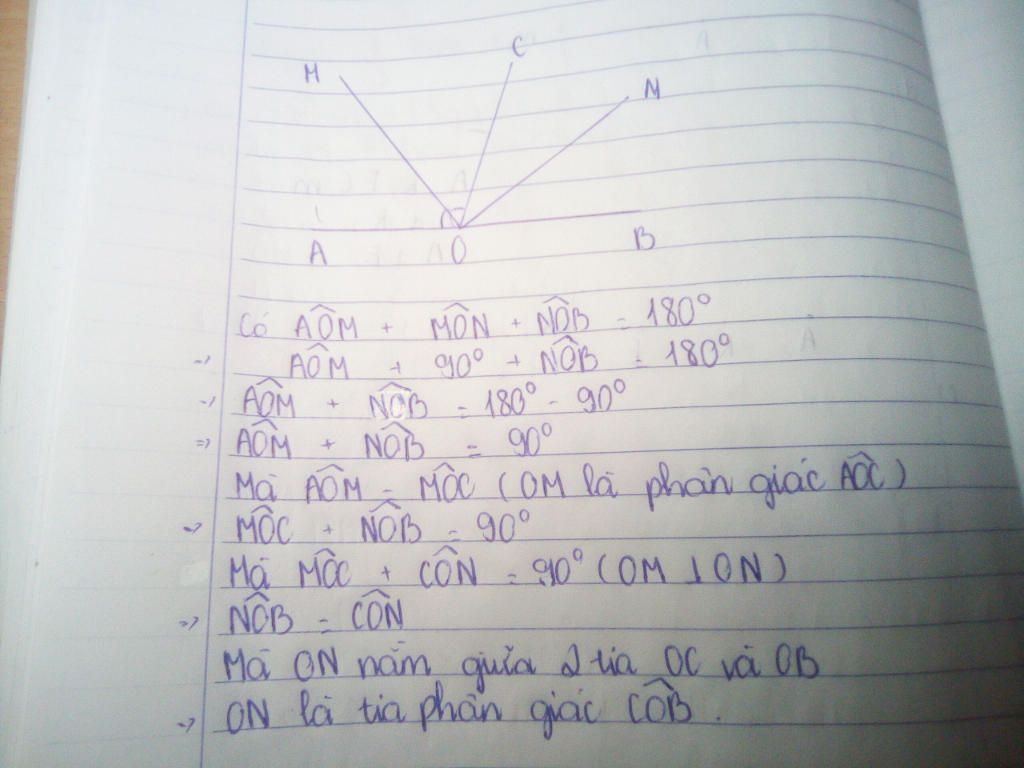 C
M
N
A O B
Có AÔM + MÔN + NÔB = 180°
=> AÔM + 90° + NÔB = 180°
=> AÔM + NÔB = 180° - 90°
=> AÔM + NÔB = 90°
Mà AÔM = MÔC (OM là phân giác AÔC)
=> MÔC + NÔB = 90°
Mà MÔC + CÔN = 90° (OM ⊥ ON)
=> NÔB = CÔN
Mà ON nằm giữa 2 tia OC và OB
=> ON là tia phân giác CÔB.